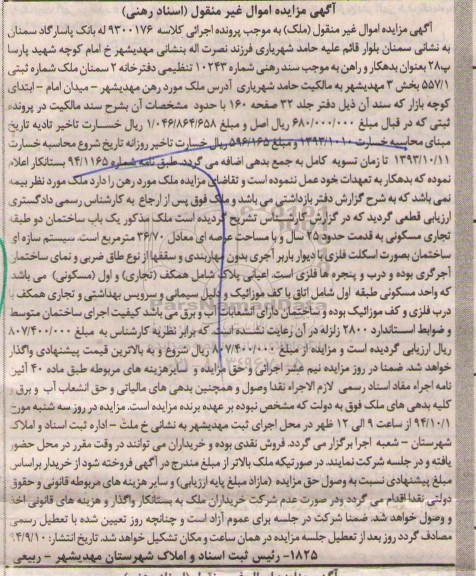 آگهی مزایده اموال غیر منقول (اسناد رهنی)
آگهی مزایده اموال غیر منقول (ملک) به موجب پرونده اجرائی کلاسه ۹۳۰۰۱۷۶ له بانک پاسارگاد سمنان
به نشانی سمنان بلوار قائم علیه حامد شهریاری فرزند نصرت اله بنشانی مهدیشهر خ امام کوچه شهید پارسا
پ۲۸ بعنوان بدهکار و راهن به موجب سند رهنی شماره ۱۰۲۴۳ تنظیمی دفترخانه ۲ سمنان ملک شماره ثبتی
۵۵۷/۱ بخش ۳ مهدیشهر به مالکیت حامد شهریاری آدرس ملک مورد رهن مهدیشهر - میدان امام - ابتدای
کوچه بازار که سند آن ذیل دفتر جلد ۳۲ صفحه ۱۶۰ با حدود مشخصات آن بشرح سند مالکیت در پرونده
ثبتی که در قبال مبلغ ۶۸۰/۰۰۰/۰۰۰ ریال اصل و مبلغ ۱/۰۴۶/۸۶۴/۶۵۸ ریال خسارت تاخیر تادیه تاریخ
مبنای محاسبه خسارت ۱۳۹۳/۱۰/۱۰ و مبلغ ۵۹۶/۱۶۵ ریال خسارت تاخیر روزانه تاریخ شروع محاسبه خسارت
۱۳۹۳/۱۰/۱۱ تا زمان تسویه کامل به جمع بدهی اضافه می گردد. طبق نامه شماره ۹۴/۱۱۶۵ بستانکار اعلام
نموده که بدهکار به تعهدات خود عمل ننموده است و تقاضای مزایده ملک مورد رهن را دارد ملک مورد نظر بیمه
نمی باشد که به شرح گزارش دفتر بازداشتی می باشد و ملک فوق پس از ارجاع به کارشناس رسمی دادگستری
ارزیابی قطعی گردید که در گزارش کارشناس تشریح گردیده است ملک مذکور یک باب ساختمان دو طبقه
تجاری مسکونی به قدمت حدود ۲۵ سال و با مساحت عرصه ای معادل ۳۶/۷۰ مترمربع است. سیستم سازه ای
ساختمان بصورت اسکلت فلزی با دیوار باربر آجری بدون مهاربندی و سقفها از نوع طاق ضربی و نمای ساختمان
آجرگری بوده و درب و پنجره ها فلزی است. اعیانی پلاک شامل همکف (تجاری) و اول (مسکونی) می باشد
که واحد مسکونی طبقه اول شامل اتاق با کف موزائیک و دلیل سیمانی و سرویس بهداشتی و تجاری همکف با
درب فلزی و کف موزائیک بوده و ساختمان دارای انشعاب آب و برق می باشد کیفیت اجرای ساختمان متوسط
و ضوابط استاندارد ۲۸۰۰ زلزله در آن رعایت نشده است. که برابر نظریه کارشناس به مبلغ ۸۰۷/۴۰۰/۰۰۰
ریال ارزیابی گردیده است و مزایده از مبلغ ۸۰۷/۴۰۰/۰۰۰ ریال شروع و به بالاترین قیمت پیشنهادی واگذار
خواهد شد. ضمنا در روز مزایده نیم عشر اجرائی و حق مزایده و سایرهزینه های مربوطه طبق ماده ۴۰ آئین
نامه اجراء مفاد اسناد رسمی لازم الاجراء نقدا وصول و همچنین بدهی های مالیاتی و حق انشعاب آب و برق و
کلیه بدهی های ملک فوق به دولت که مشخص نبوده بر عهده برنده مزایده است. مزایده در روز سه شنبه مورخ
۹۴/۱۰/۱ از ساعت ۹ الی ۱۲ ظهر در محل اجرای ثبت مهدیشهر به نشانی خ ملت - اداره ثبت اسناد و املاک
شهرستان - شعبه اجرا برگزار می گردد. فروش نقدی بوده و خریداران می توانند در وقت مقرر در محل حضور
یافته و در جلسه شرکت نمایند. در صورتیکه ملک بالاتر از مبلغ مندرج در آگهی فروخته شود از خریدار براساس
مبلغ پیشنهادی نسبت به وصول حق مزایده (مازاد مبلغ پایه ارزیابی) و سایر هزینه های مربوطه قانونی و حقوق
دولتی نقدا اقدام می گردد ودر صورت عدم شرکت خریداران ملک به بستانکار واگذار و هزینه های قانونی اخذ
و وصول خواهد شد. ضمنا شرکت در جلسه برای عموم آزاد است و چنانچه روز تعیین شده با تعطیل رسمی
مصادف گردد روز بعد از تعطیل جلسه مزایده در همان ساعت و مکان تشکیل خواهد شد. تاریخ انتشار: ۹۴/۹/۱۰
۱۸۲۵- رئیس ثبت اسناد و املاک شهرستان مهدیشهر - ربیعی